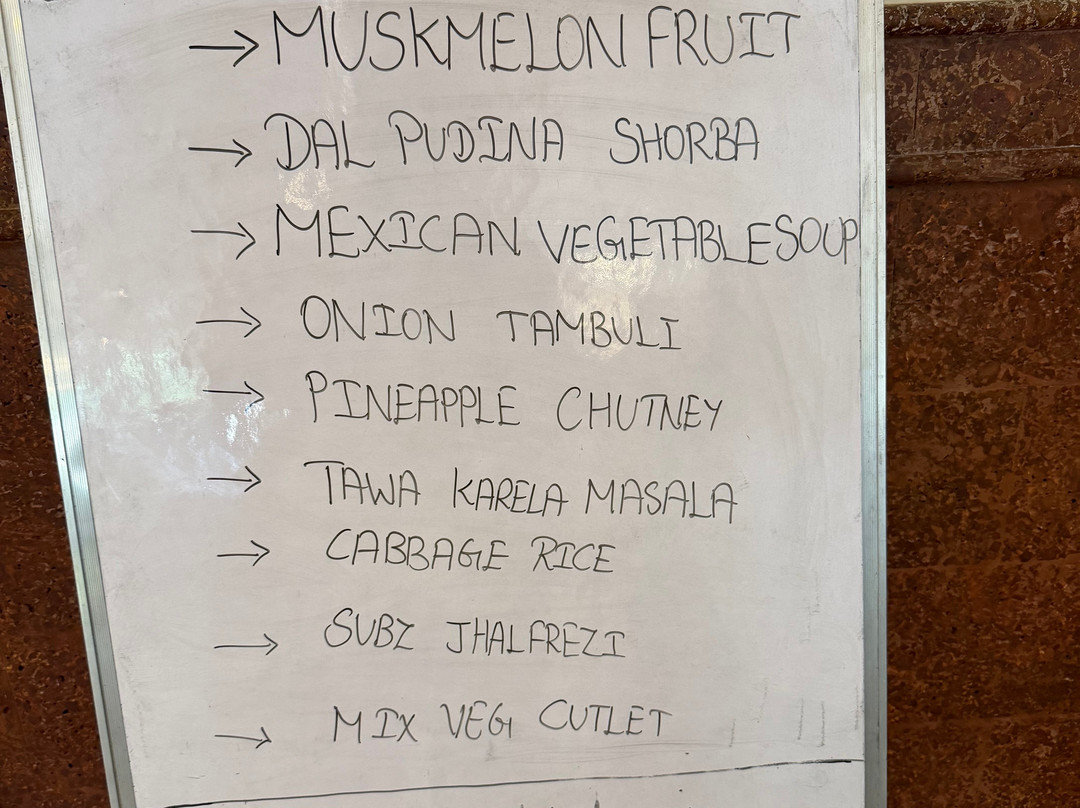 → MUSKMELON FRUIT
→ DAL PUDINA SHORBA
→ MEXICAN VEGETABLE SOUP
→ ONION TAMBULI
→ PINEAPPLE CHUTNEY
→ TAWA KARELA MASALA
→ CABBAGE RICE
→ SUBZ JHALFREZI
→ MIX VEG CUTLET